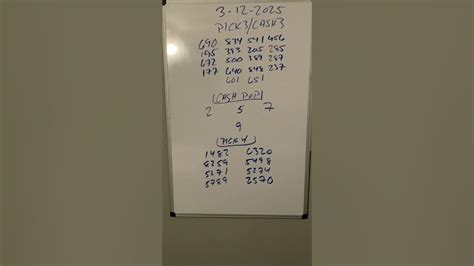 3-12-2025
PICK3/CASH3
690 834 541 456
195 393 205 285
672 500 387 287
177 640 848 237
601 651
CASH POP
2 5 7
9
PICK 4
1482 6320
8259 5498
5271 5274
5789 2570